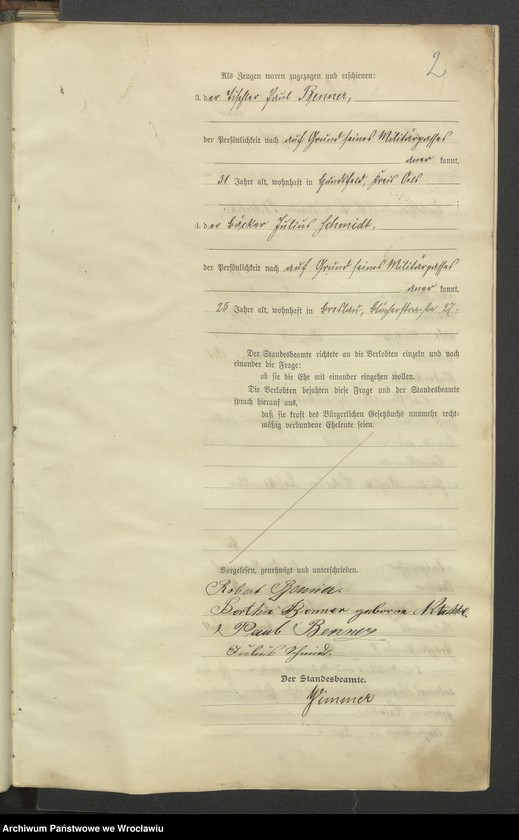 2
Als Zeugen waren zugezogen und erschienen:
3. der Tischler Paul Benner,
der Persönlichkeit nach auf Grund seines Militärpasses
aner kannt,
31 Jahre alt, wohnhaft in Hundsfeld, Kreis Oels
;
4. der Bäcker Julius Schmidt,
der Persönlichkeit nach auf Grund seines Militärpasses
aner kannt,
25 Jahre alt, wohnhaft in Breslau, Blücherstraße 27.
Der Standesbeamte richtete an die Verlobten einzeln und nach
einander die Frage:
ob sie die Ehe mit einander eingehen wollen.
Die Verlobten bejahten diese Frage und der Standesbeamte
sprach hierauf aus,
daß sie kraft des Bürgerlichen Gesetzbuchs nunmehr recht-
mäßig verbundene Eheleute seien.
Vorgelesen, genehmigt und unterschrieben.
Robert Benner.
Bertha Benner geborne
Paul Benner
Julius Schmidt.
Der Standesbeamte.
Zimmer
Archiwum Państwowe we Wrocławiu